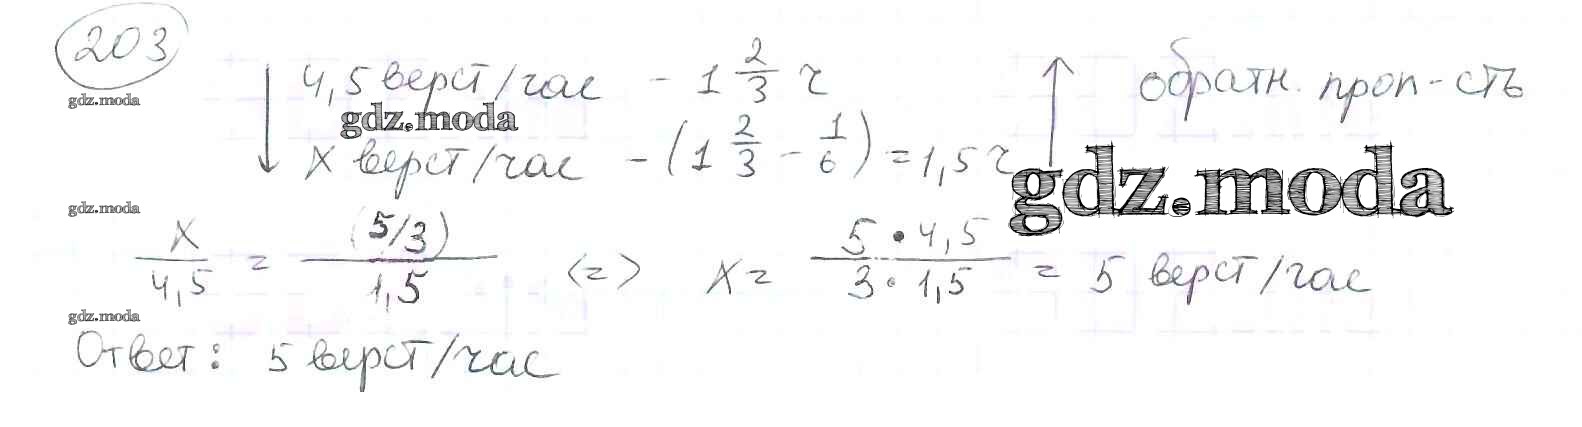 203
gdz.moda
↓ 4,5 верст/час - 1 2/3 ч ↑ обратн. проп-сть
gdz.moda
x верст/час - (1 2/3 - 1/6) = 1,5 ч
gdz.moda
gdz.moda
x/4,5 = (5/3)/1,5 <=> x = 5•4,5/3·1,5 = 5 верст/час
gdz.moda
Ответ: 5 верст/час